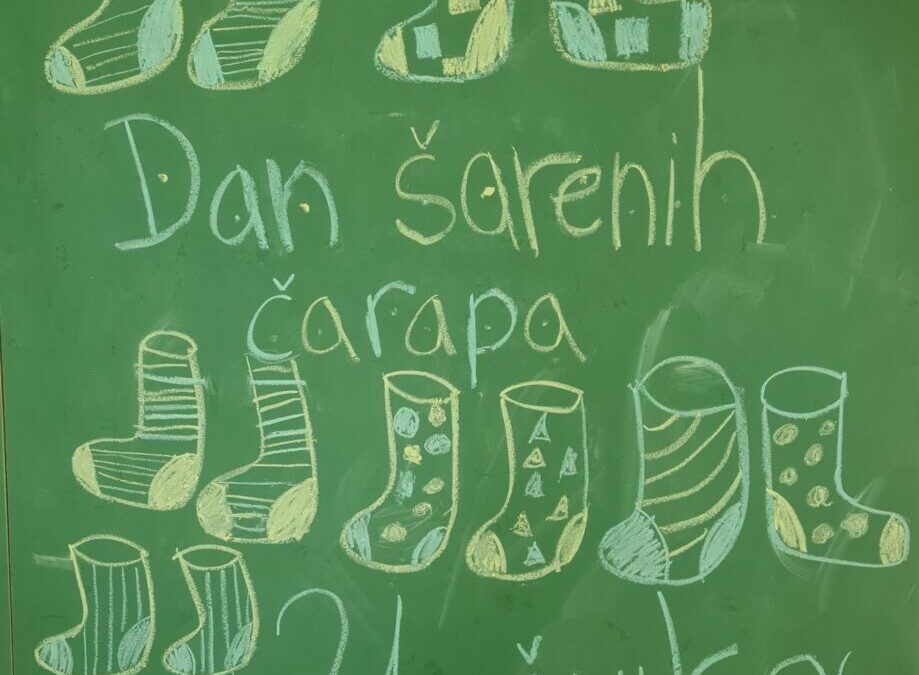 Dan šarenih
čarapa